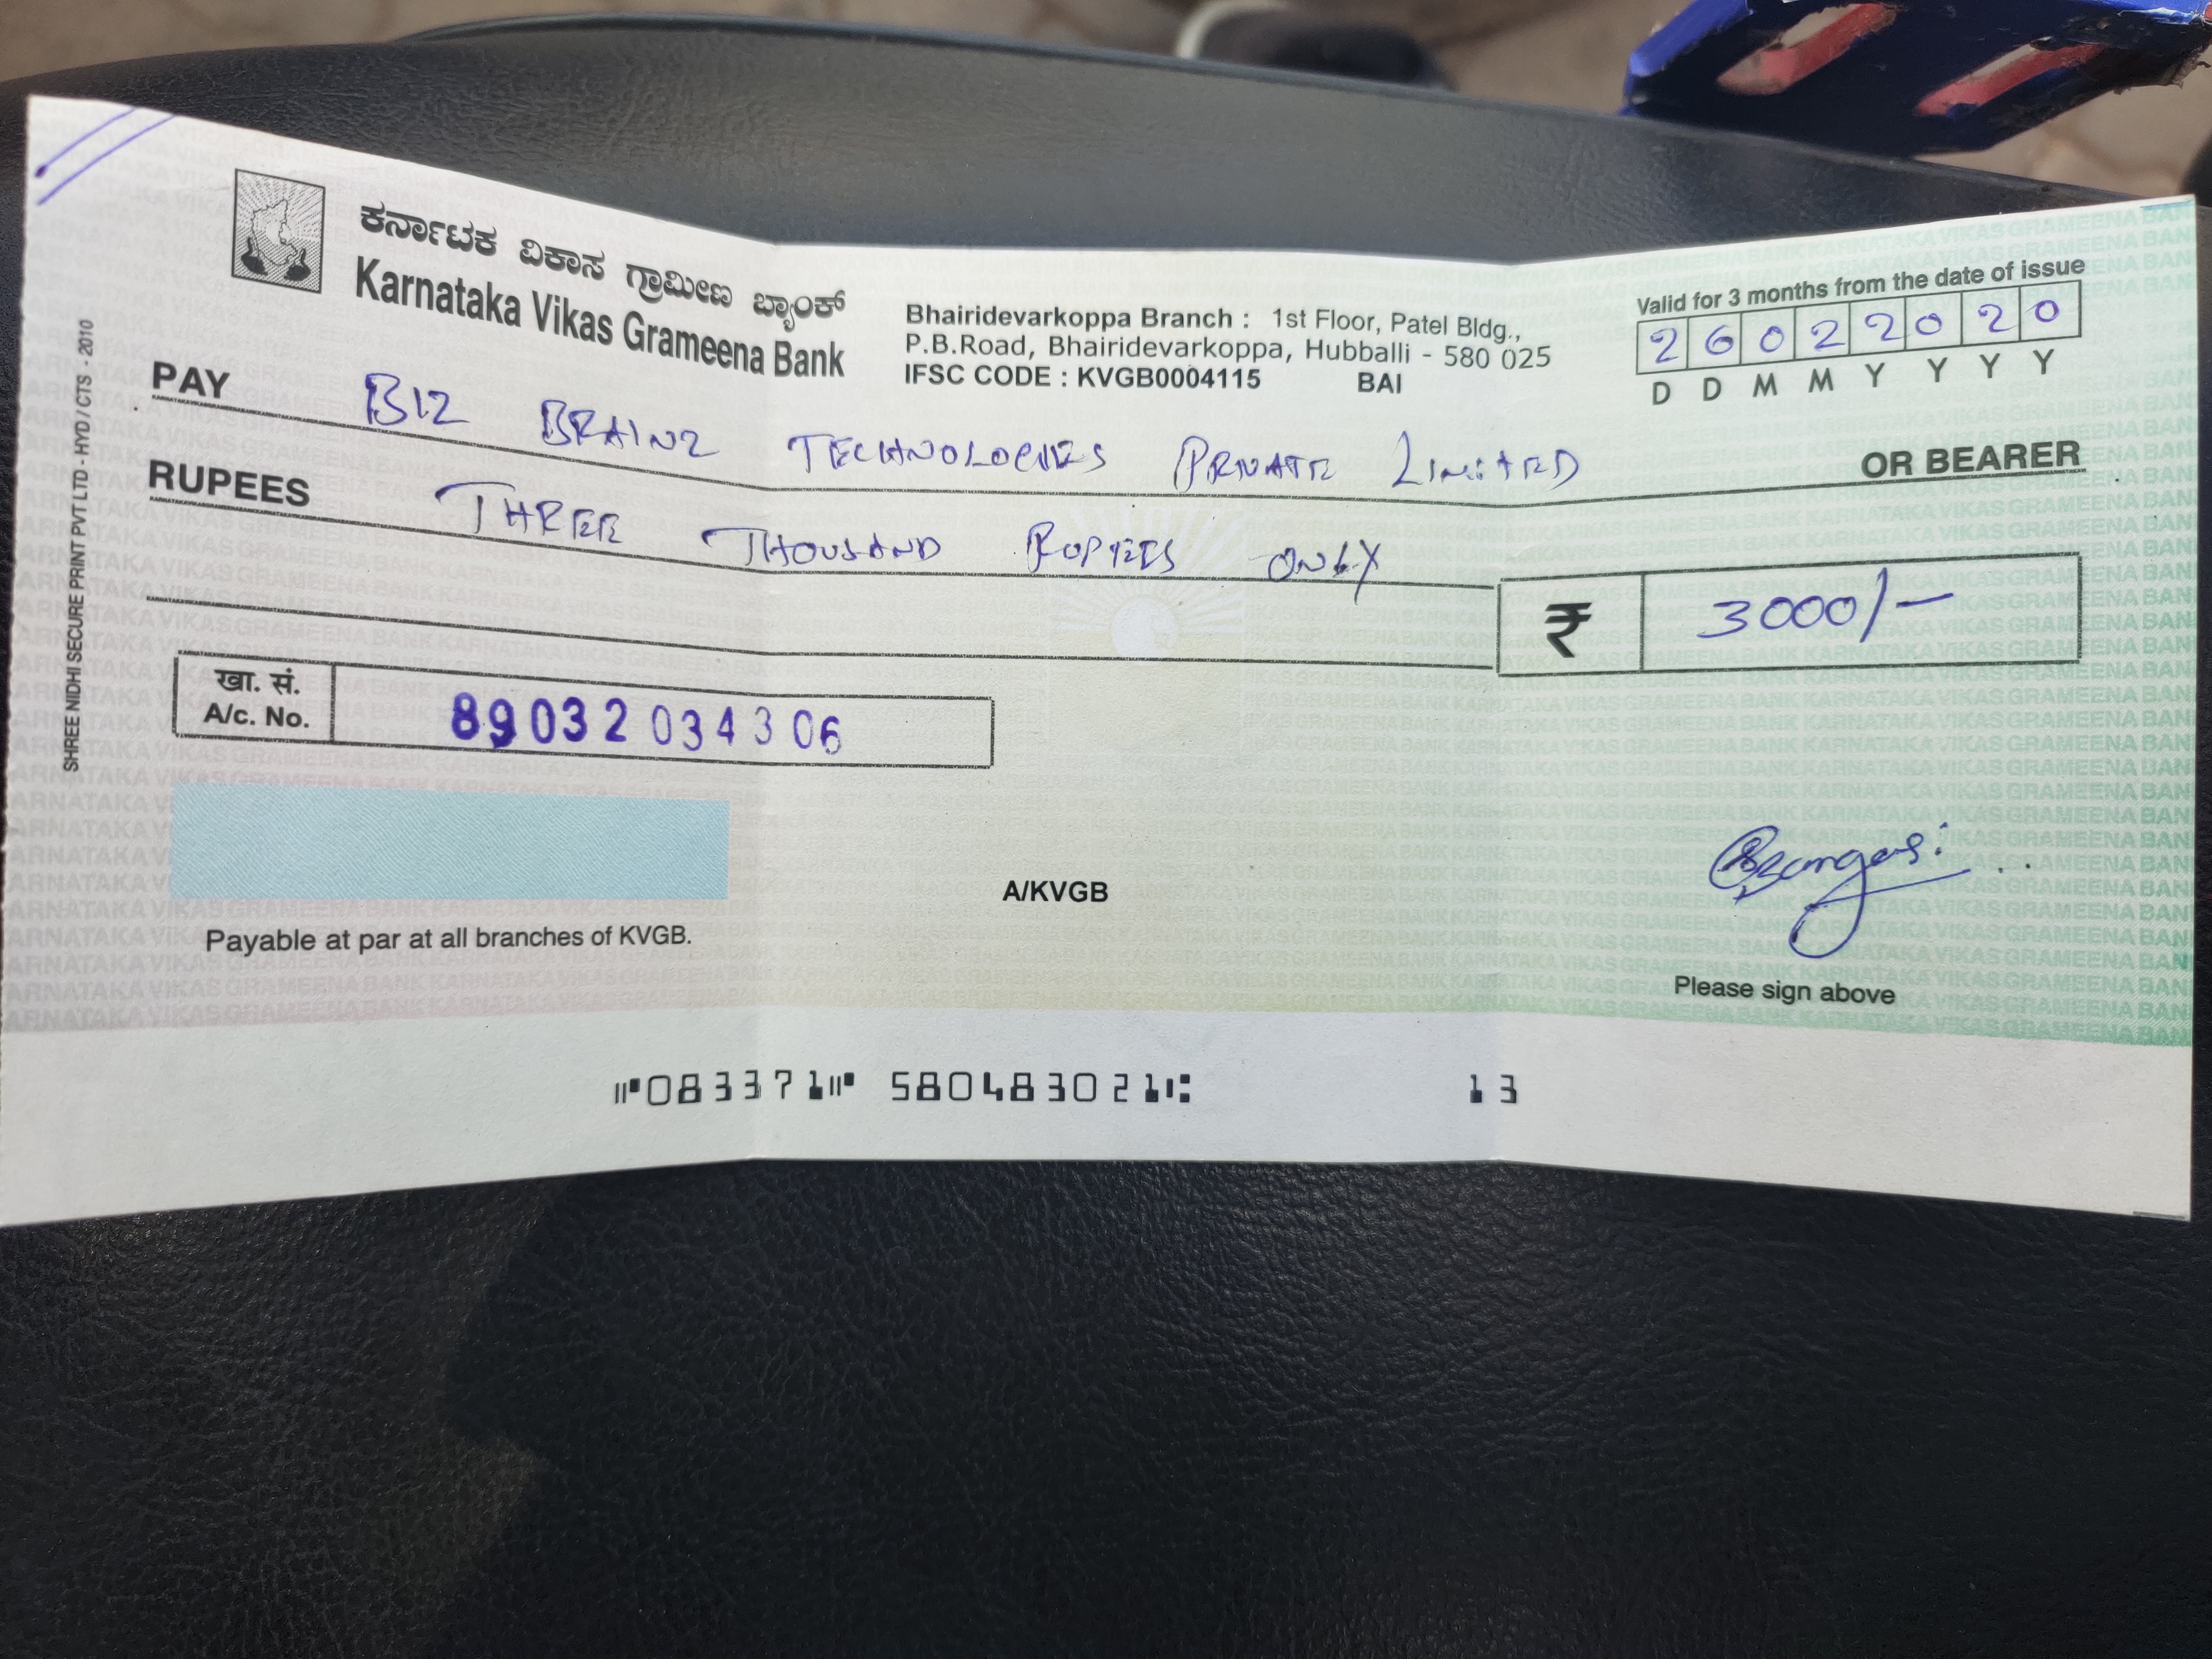 ಕರ್ನಾಟಕ ವಿಕಾಸ ಗ್ರಾಮೀಣ ಬ್ಯಾಂಕ್
Karnataka Vikas Grameena Bank
Bhairidevarkoppa Branch : 1st Floor, Patel Bldg.,
P.B.Road, Bhairidevarkoppa, Hubballi - 580 025
IFSC CODE : KVGB0004115 BAI
Valid for 3 months from the date of issue
2 6 0 2 2 0 2 0
D D M M Y Y Y Y
PAY BIZ BRAINZ TECHNOLOGIES PRIVATE LIMITED OR BEARER
RUPEES THREE THOUSAND RUPEES ONLY
₹ 3000/-
खा. सं.
A/c. No. 89032034306
A/KVGB
Payable at par at all branches of KVGB.
Please sign above
⑈083371⑈ 580483021⑆ 13
SHREE NIDHI SECURE PRINT PVT LTD - HYD / CTS - 2010